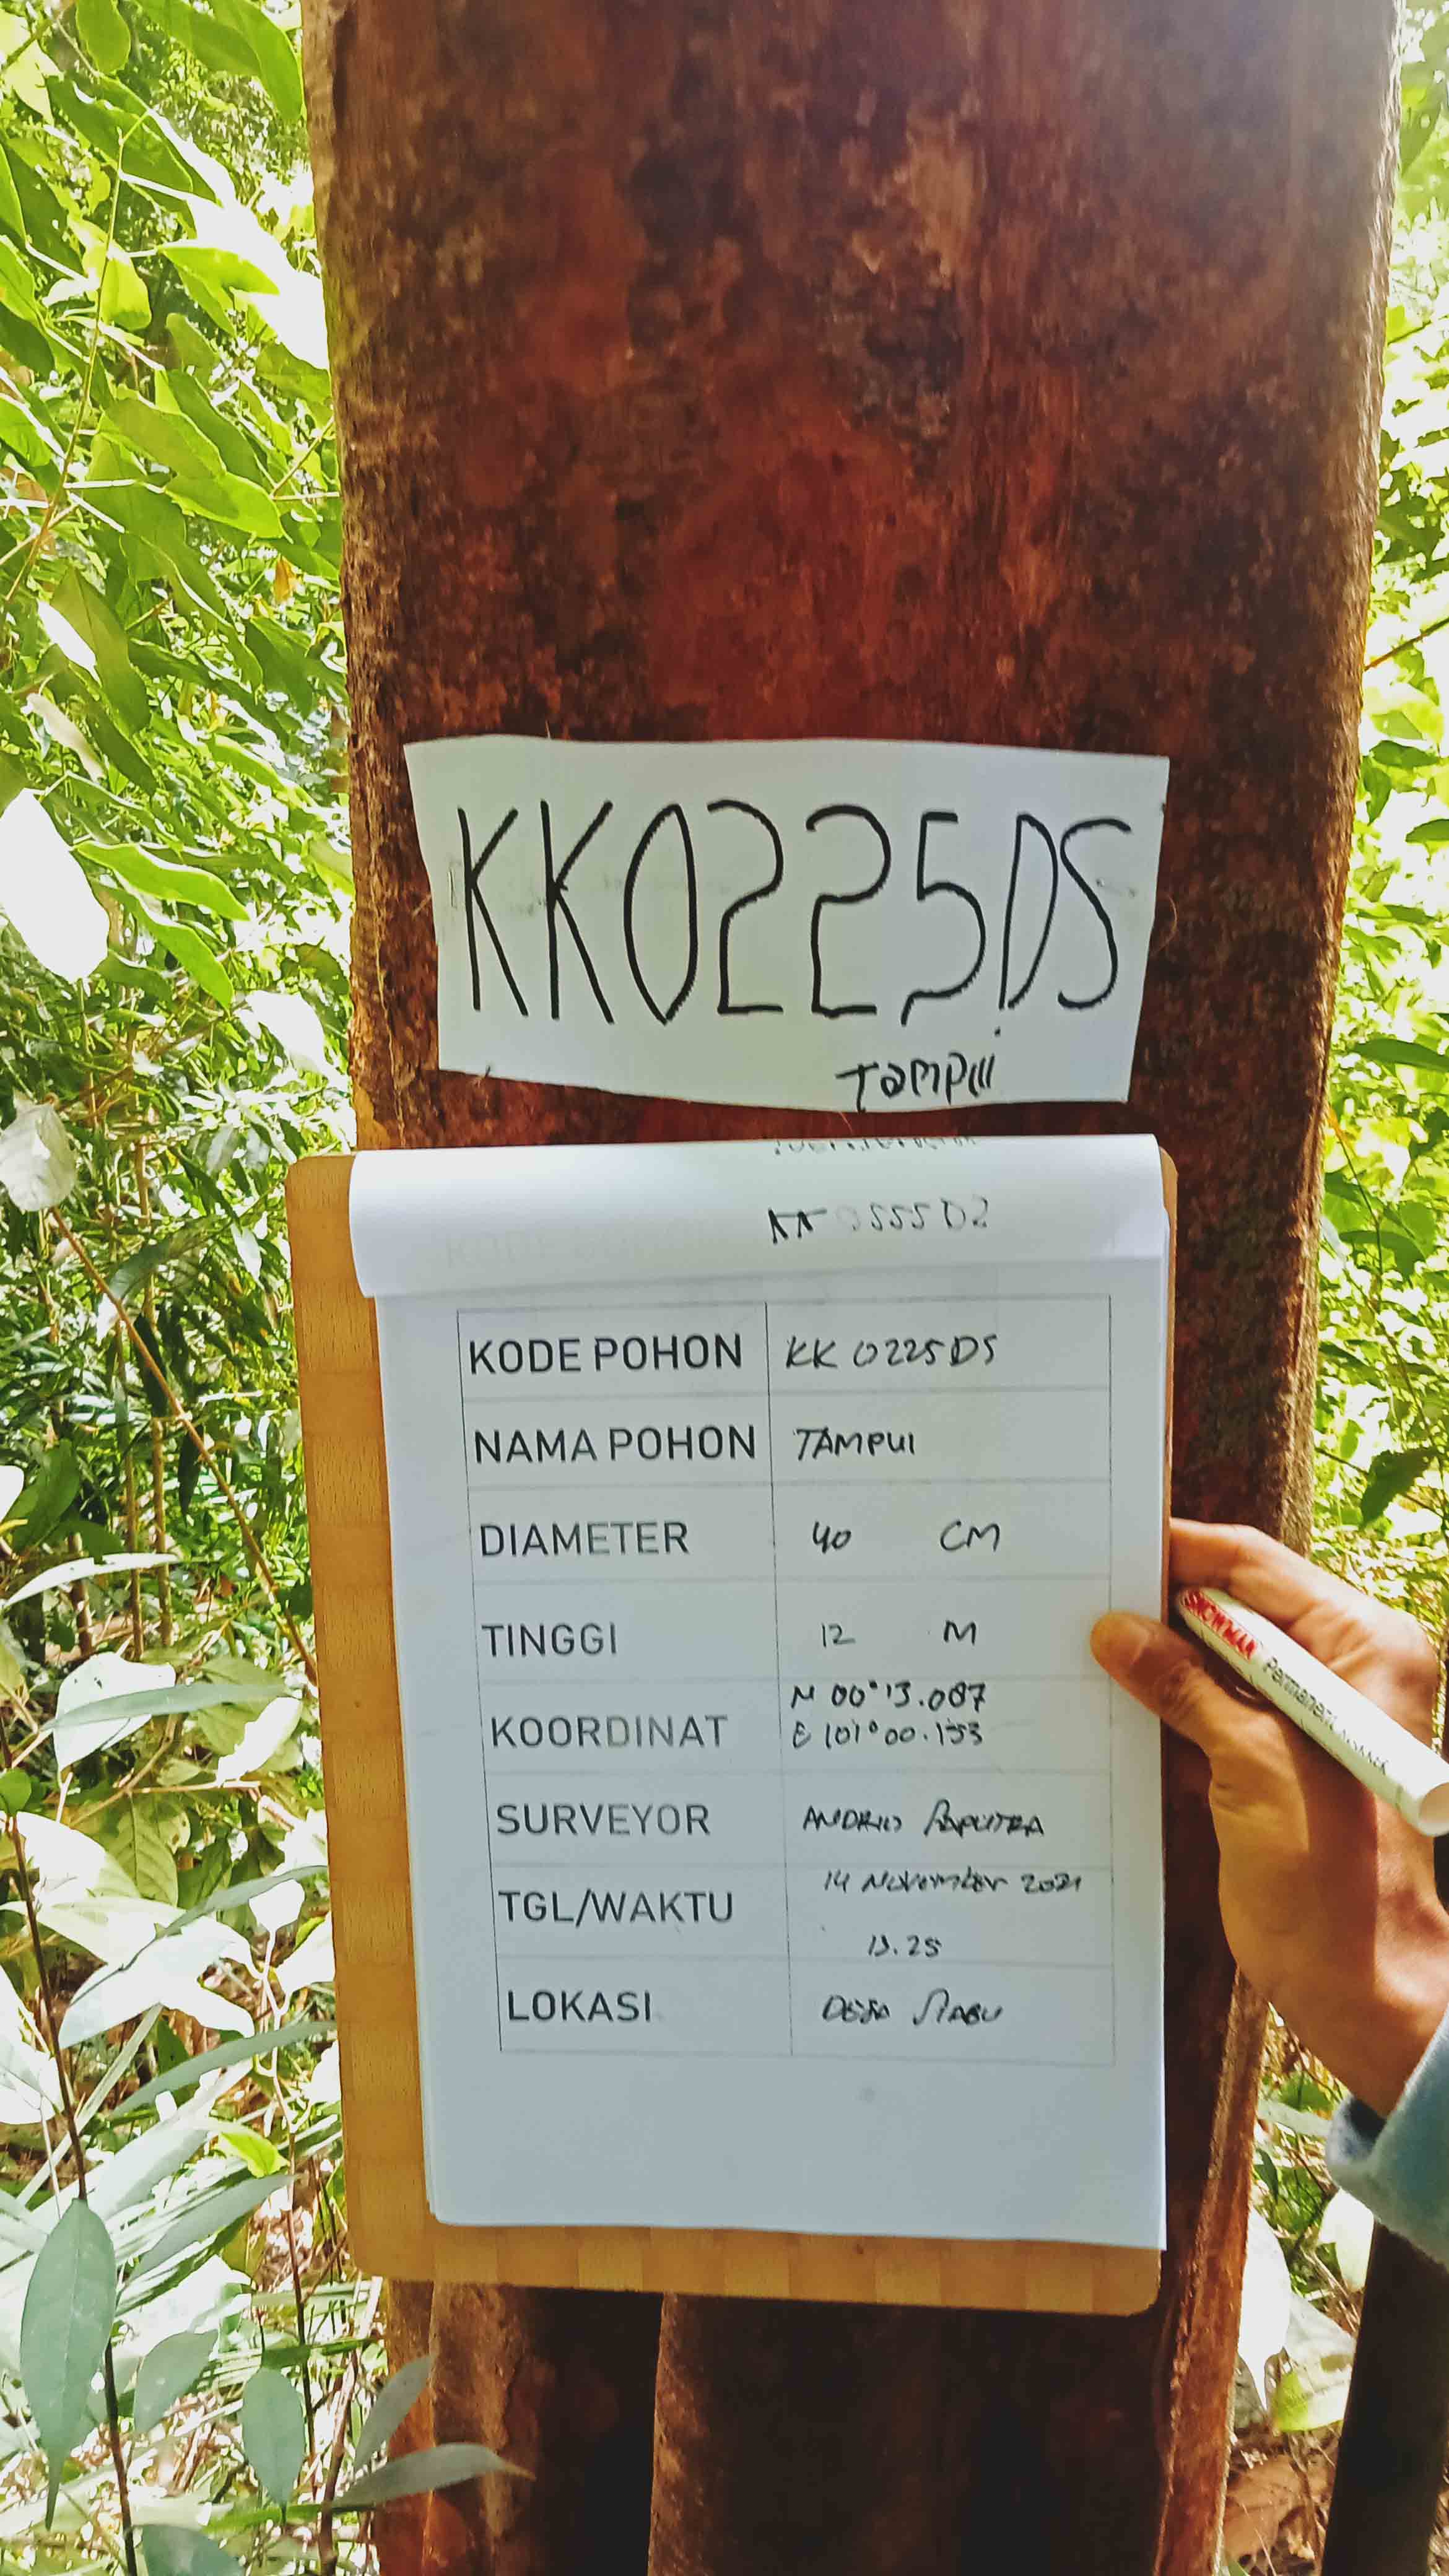 KK0225DS
Tampui
KODE POHON KK 0225DS
NAMA POHON TAMPUI
DIAMETER 40 CM
TINGGI 12 M
KOORDINAT N 00°13.087
E 101°00.153
SURVEYOR SAPUTRA
TGL/WAKTU 14 November 2021
13.25
LOKASI DESA
SNOWMAN Permanent